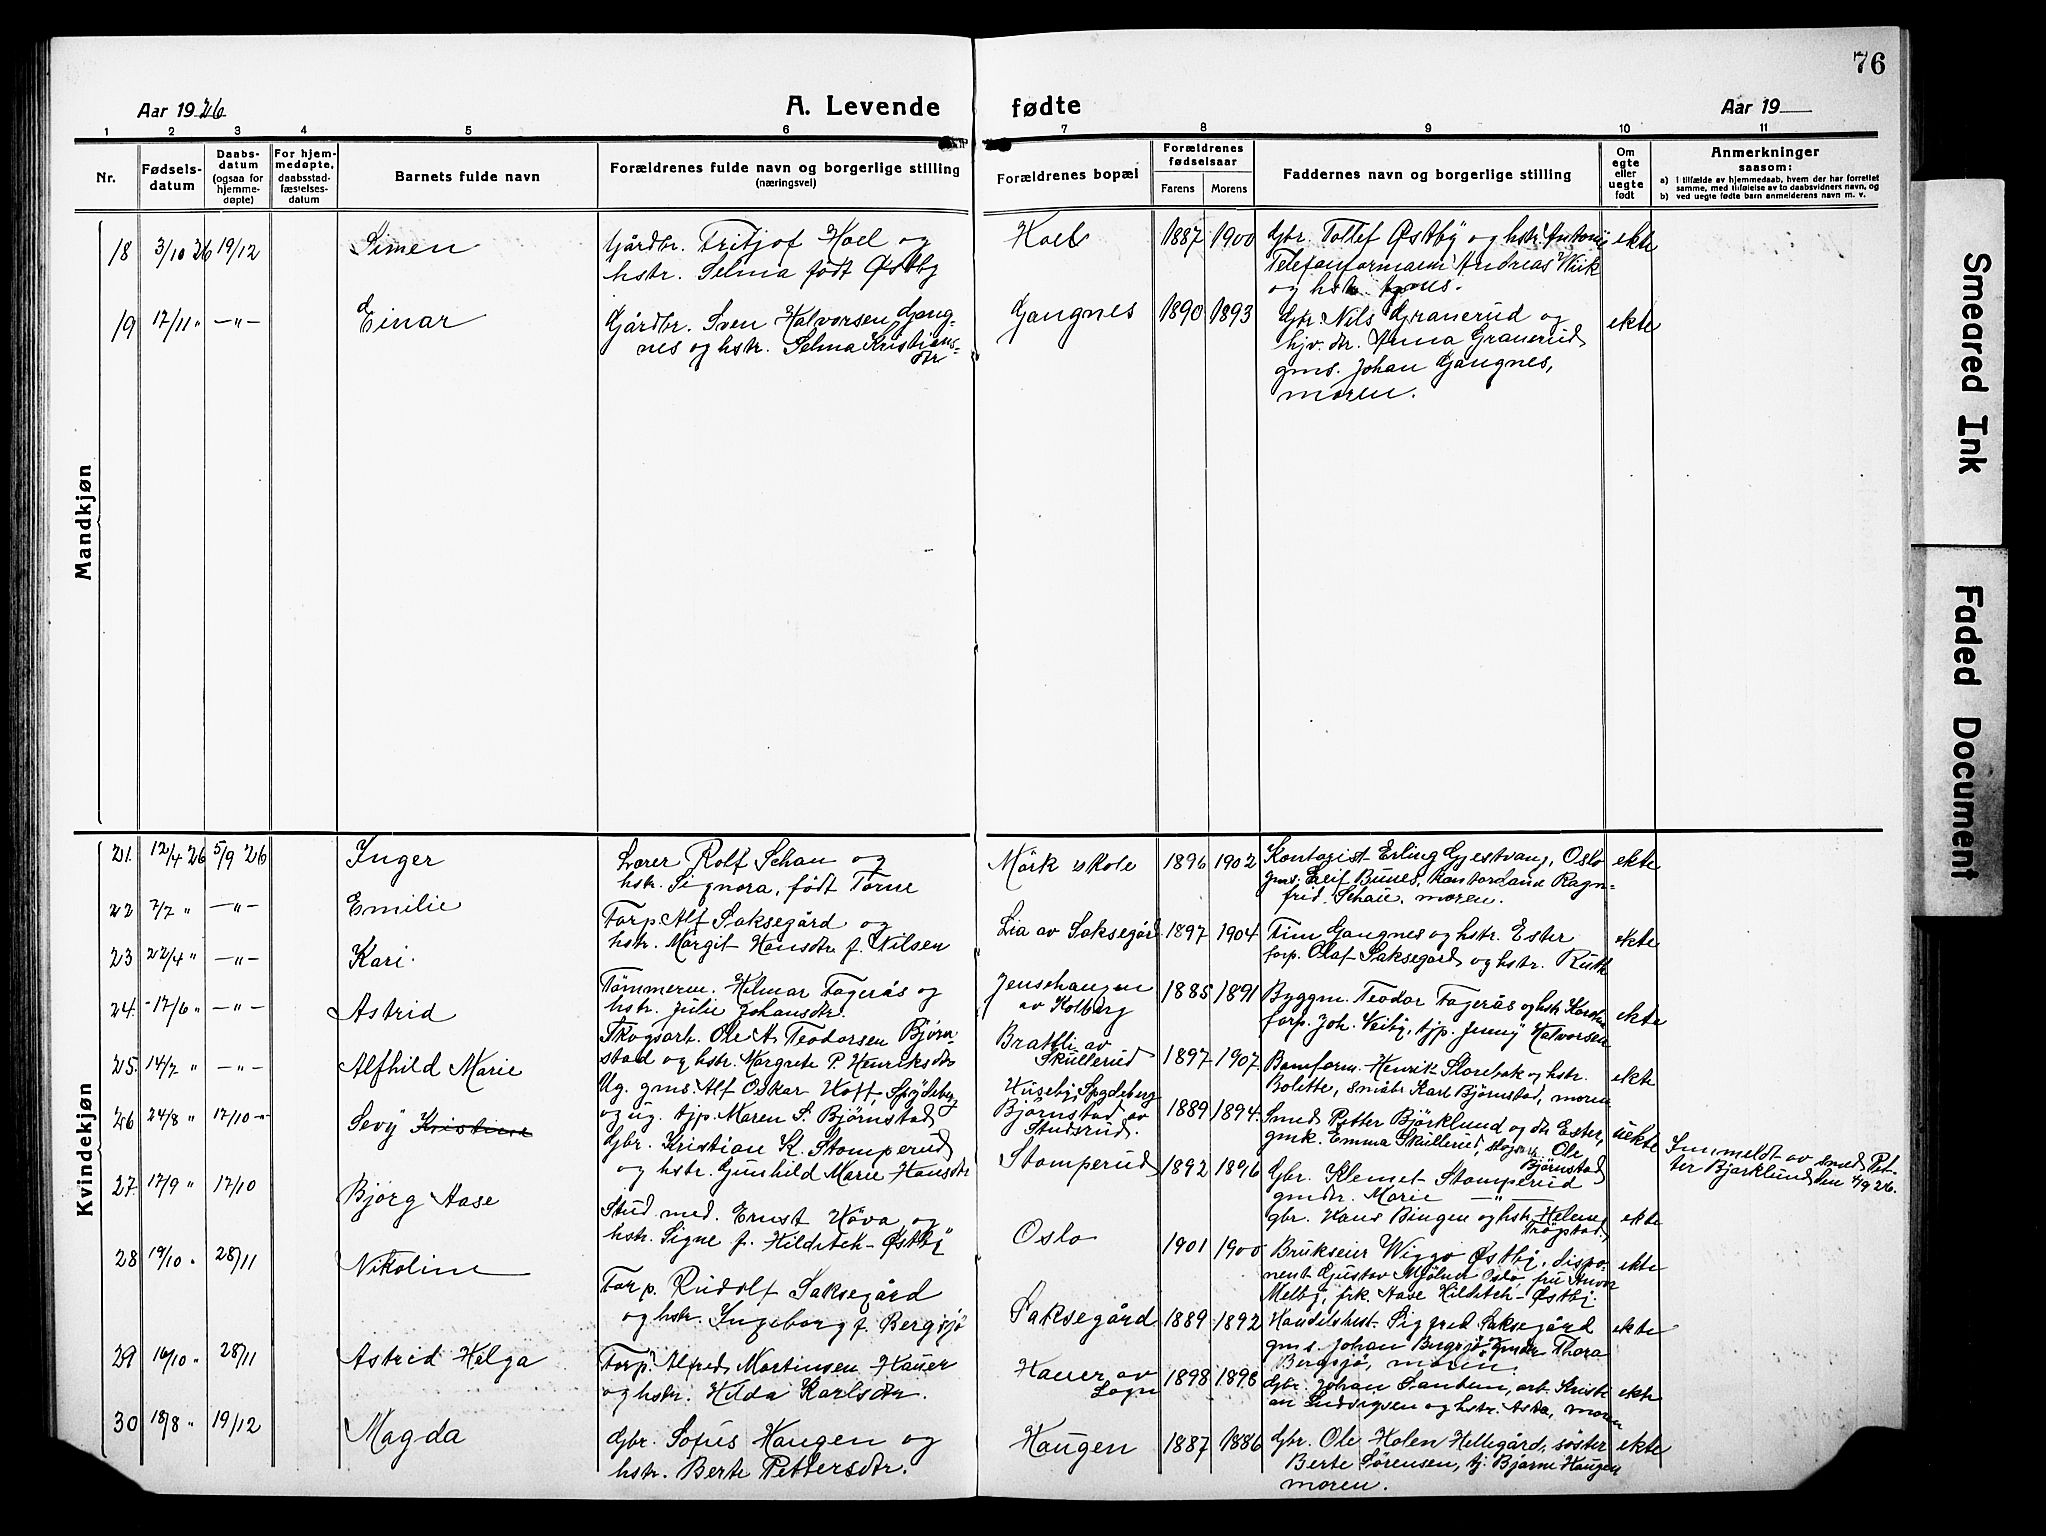 76
Aar 1926
A. Levende fødte
Aar 19
1 2 3 4 5 6 7 8 9 10 11
Nr.
Fødsels-
datum
Daabs-
datum
(ogsaa for
hjemme-
døpte)
For hjem-
medøpte,
daabsstad-
fæstelses-
datum
Barnets fulde navn
Forældrenes fulde navn og borgerlige stilling
(næringsvei)
Forældrenes bopæl
Forældrenes
fødselsaar
Farens Morens
Faddernes navn og borgerlige stilling
Om
egte
eller
uegte
født
Anmerkninger
saasom:
a) i tilfælde av hjemmedaab, hvem der har forrettet
samme, med tilføielse av to daabsvidners navn, og
b) ved uegte fødte barn anmelderens navn m. v.
Mandkjøn
18 3/10 26 19/12 Simen
Gårdbr. Fritjof Hoel og
hstr. Selma født Østby
Hoel 1887 1900
Gbr. Tollef Østby og hstr. Antonie
Telefonformann Andreas Wiik
og hstr. Agnes.
ekte
19 17/11 " -"- Einar
Gårdbr. Sven Halvorsen Gang-
nes og hstr. Selma Kristians-
dtr
Gangnes 1890 1893
Gbr. Nils Granerud og
hjv. dtr. Anna Granerud
gms. Johan Gangnes,
moren.
ekte
Kvindekjøn
21. 12/4 26 5/9 26 Inger
Lærer Rolf Schau og
hstr. Signora, født Torne
Mörk skole 1896 1902
Kontorist Erling Gjestvang, Oslo
gms. Leif Bunes, kontordame Ragn-
frid Schau, moren.
ekte
22 7/7 " -"- Emilie
Forp. Alf Saksegård og
hstr. Margit Hansdtr f. Nilsen
Lia av Saksegård 1897 1904
Tim Gangnes og hstr. Ester
forp. Olaf Saksegård og hstr. Ruth
ekte
23 22/4 " -"- Kari.
Tömmerm. Hilmar Fagerås og
hstr. Julie Johansdtr.
Jensehaugen
av Kolberg
1885 1891
Byggm. Teodor Fagerås og hstr. Karoline
forp. Joh. Veiby, tjp. Jenny Halvorsen
ekte
24. 17/6 " -"- Astrid
Skogsarb. Ole A. Teodorsen Bjørn-
stad og hstr. Margrete P. Henriksdtr
Brattli av
Skullerud
1897 1907
Banform. Henrik Storebak og hstr.
Bolette, småbr Karl Bjørnstad, moren
ekte
25. 14/7 " -"- Alfhild Marie
Ug. gms. Alf Oskar Hoff, Spydeberg
og ug. tjp. Maren S. Bjørnstad
Huseby, Spydeberg
Bjørnstad av
Studsrud.
1889 1894.
Smed Petter Björklund og dtr Ester,
gmk. Emma Skullerud, skogsarb. Ole
Bjørnstad
uekte
Innmeldt av smed Pet-
ter Bjørklund den 4/9 26.
26 24/8 " 17/10 -"- Sevy Kristiane
Gbr. Kristian K. Stomperud
og hstr. Gunhild Marie Hansdtr
Stomperud 1892 1896
Gbr. Klemet Stomperud
gmdtr. Marie —"—
gbr. Hans Bingen og hstr. Helene
Trøgstad.
ekte
27 17/9 " 17/10 Bjørg Aase
Stud. med. Ernst Höva og
hstr. Signe f. Hilditch-Østby
Oslo 1901 1900
Brukseier Wiggo Østby, dispo-
nent Gustav Mjölner Oslo, fru Anna
Melby, frk. Aase Hilditch-Østby.
ekte
28 19/10 " 28/11 Nikoline
Forp. Rudolf Saksegård
og hstr. Ingeborg f. Bergsjø
Saksegård 1889 1892
Handelsbest. Sigfred Saksegård
gms. Johan Bergsjø, gmdtr Thora
Bergsjø, moren.
ekte
29 16/10 " 28/11 Astrid Helga
Forp. Alfred Martinsen Hauer
og hstr. Hilda Karlsdtr.
Hauer av
Sogn
1898 1898
Gbr. Johan Sandem, arb. Kristi-
an Ludvigsen og hstr. Asta, moren
ekte
30 18/8 " 19/12 Magda
Gbr. Sofus Haugen og
hstr. Berte Pettersdtr.
Haugen 1887 1886
Gbr. Ole Holen Hellegård, søster
Berte Sørensen, tj. Bjarne Haugen
moren.
ekte
Smeared Ink
Faded Document